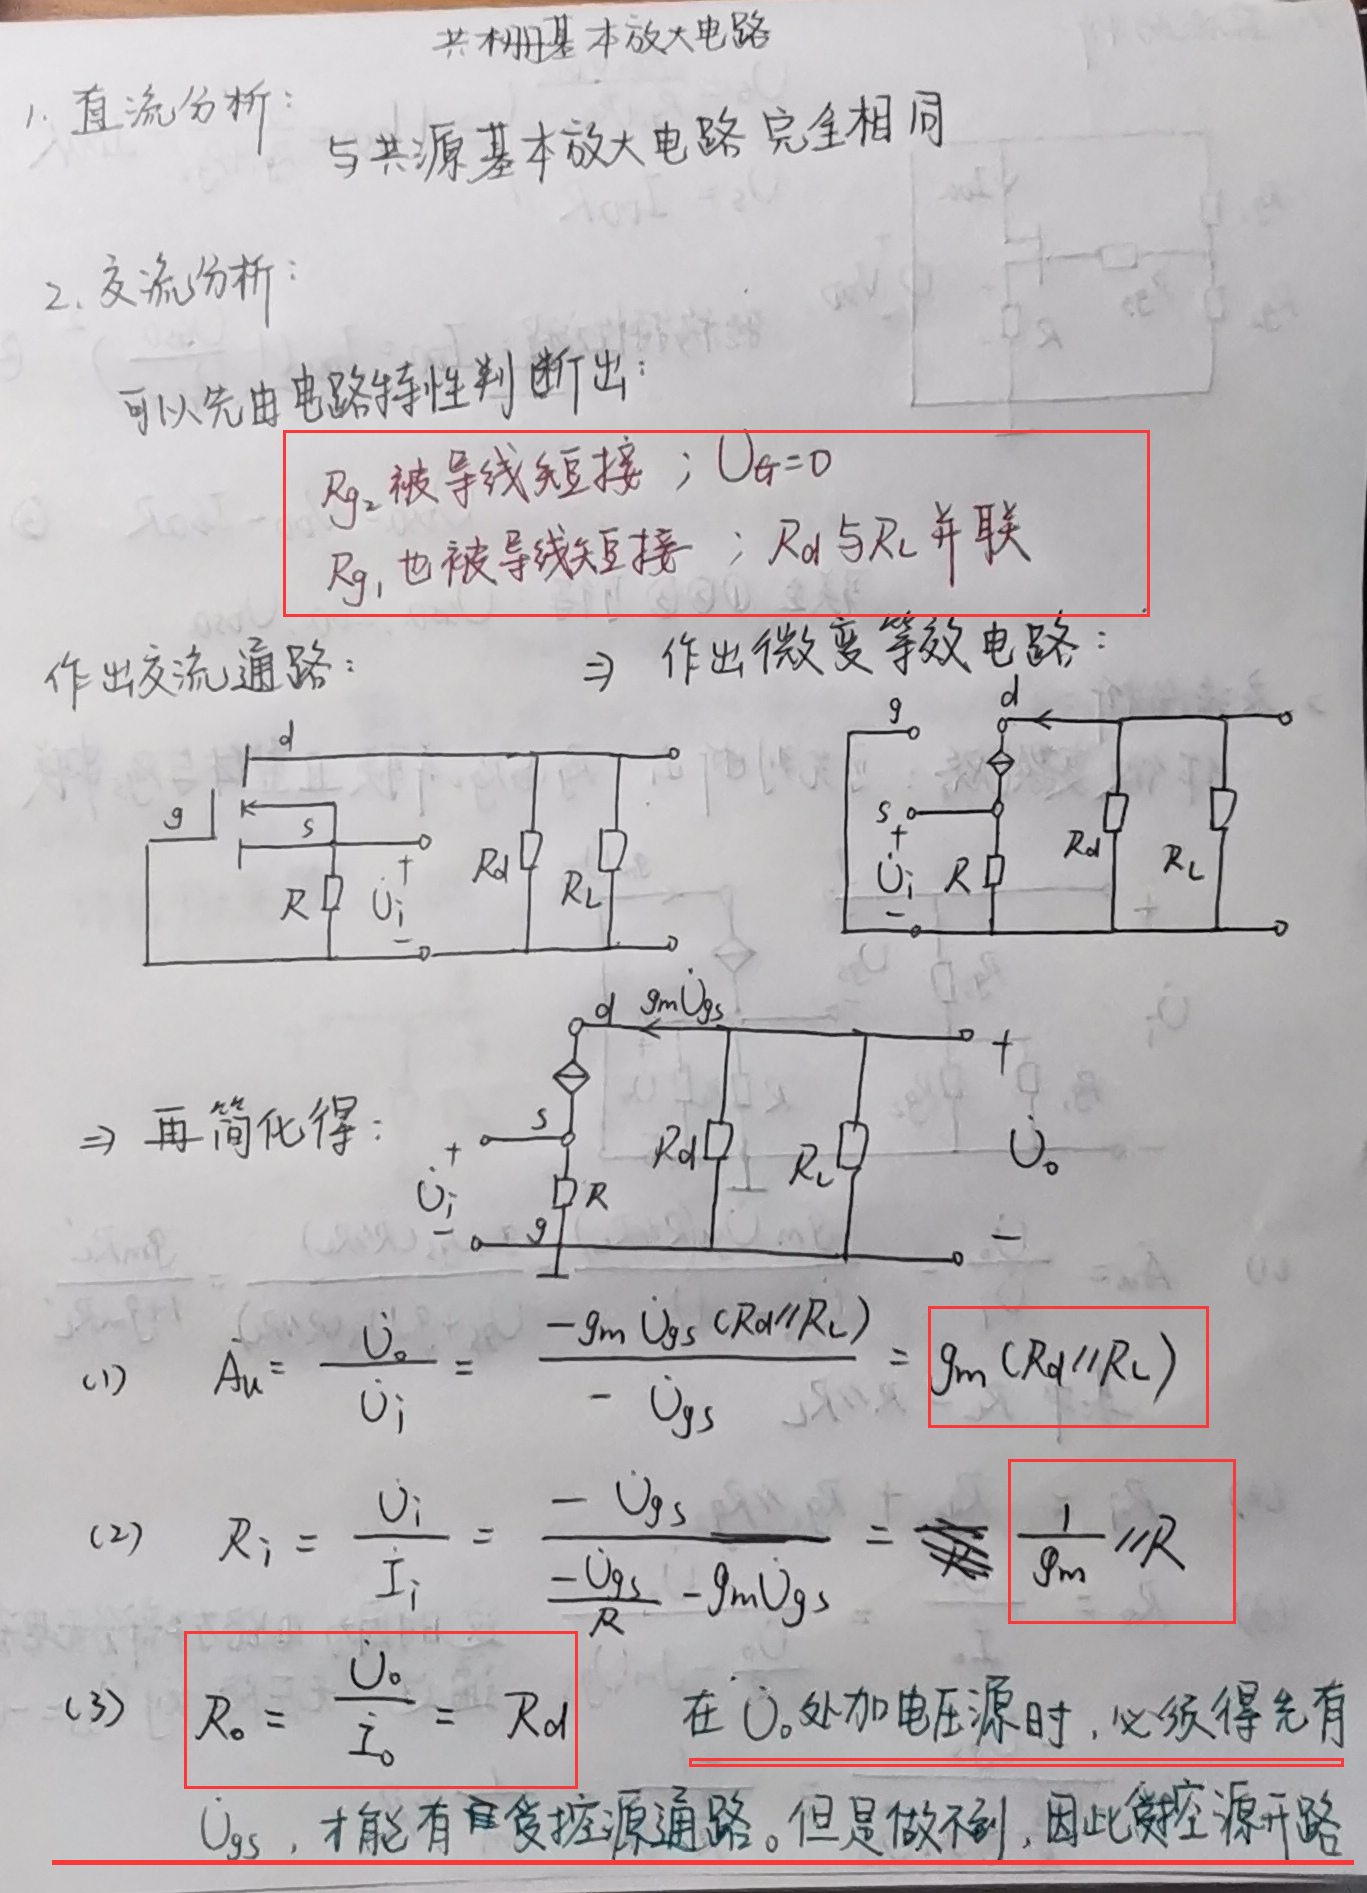 共栅基本放大电路
1. 直流分析:
与共源基本放大电路完全相同
2. 交流分析:
可以先由电路特性判断出:
Rg₂被导线短接 ; U̇G=0
Rg₁也被导线短接 ; Rd与RL并联
作出交流通路: ⇒ 作出微变等效电路:
d
g
s
R
U̇i
+
-
Rd
RL
g
d
s
+
U̇i
-
R
Rd
RL
⇒ 再简化得:
d
gmU̇gs
s
+
U̇i
-
R
g
Rd
RL
+
U̇o
-
(1) Ȧu = U̇o/U̇i = -gmU̇gs(Rd//RL)/-U̇gs = gm(Rd//RL)
(2) Ri = U̇i/İi = -U̇gs/(-U̇gs/R - gmU̇gs) = 1/gm //R
(3) Ro = U̇o/İo = Rd 在U̇o处加电压源时,必须得先有
U̇gs,才能有受控源通路。但是做不到,因此受控源开路